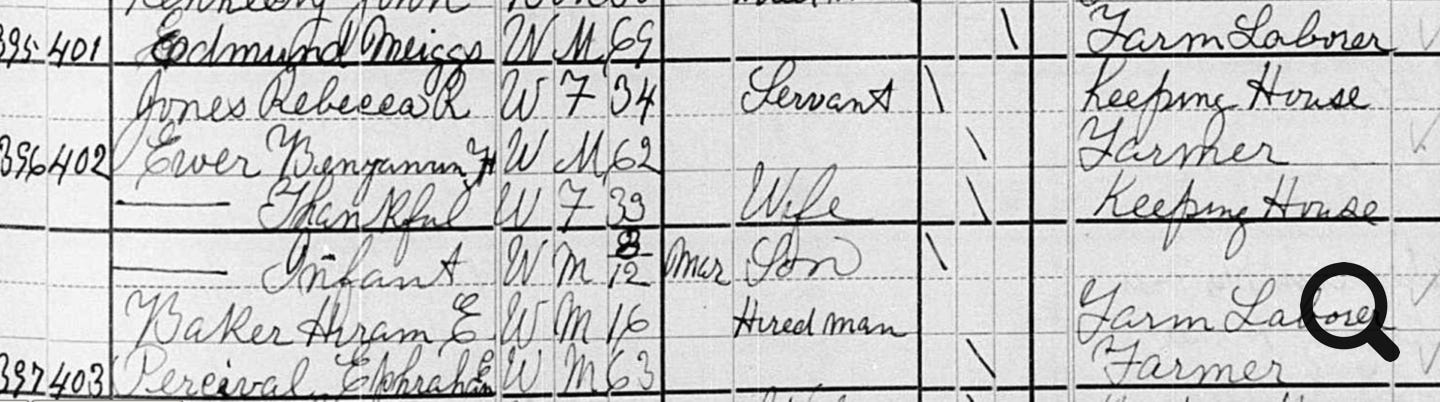 395 401 Edmund Meiggs W M 69 \ Farm Laborer
Jones Rebecca R W F 34 Servant \ Keeping House
396 402 Ewer Benjamin W M 62 \ Farmer
—— Thankful W F 39 Wife \ Keeping House
—— Infant W M 3/12 Mar Son \
Baker Hiram E W M 16 Hired man Farm Laborer
397 403 Percival Ephraham W M 63 \ Farmer